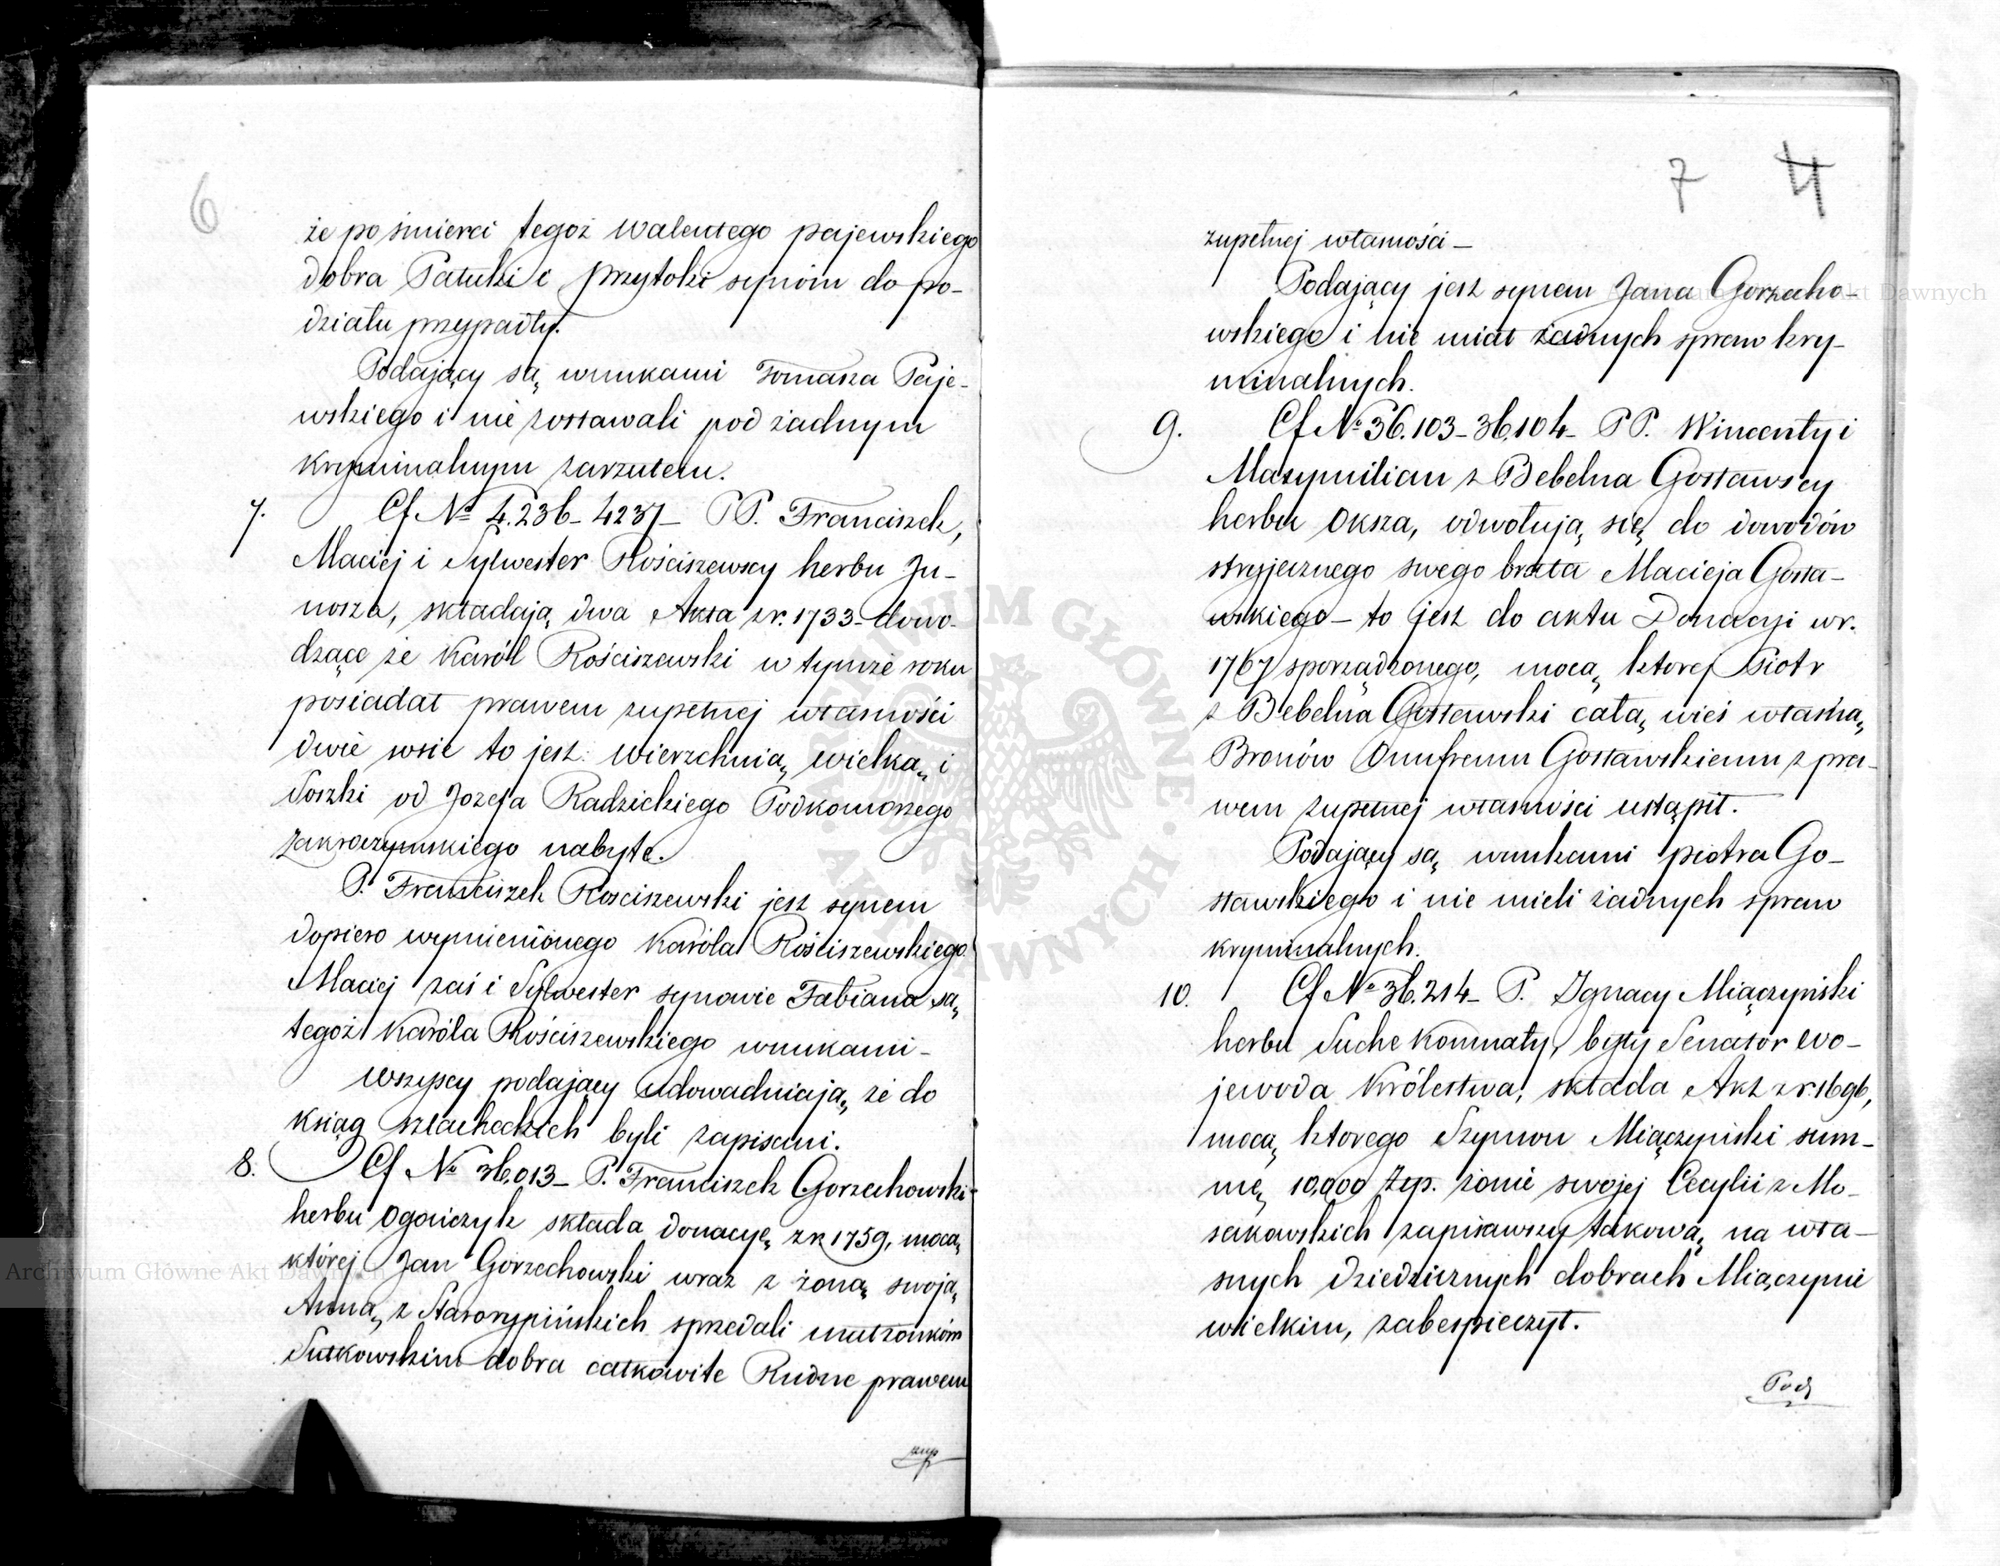 6
że po śmierci tegoż Walentego Pajewskiego
dobra Patuki i Przytoki synóm do po-
działu przypadły.
Podający są wnukami Tomasza Paje-
wskiego i nie zostawali pod żadnym
kryminalnym zarzutem.
7. Cf No 4.236-4237- PP. Franciszek,
Maciej i Sylwester Rościszewscy herbu Ju-
nosza, składają dwa Akta z r. 1733- dowo-
dzące że Karól Rościszewski w tymże roku
posiadał prawem zupełnej własności
dwie wsie to jest: Wierzchnią wielką i
Soszki od Jozefa Radzickiego Podkomorzego
Zakroczymskiego nabyte.
P. Franciszek Rosciszewski jest synem
dopiero wymienionego Karóla Rościszewskiego
Maciej zaś i Sylwester synowie Fabiana są
tegoż Karóla Rościszewskiego wnukami-
Wszyscy podający udowadniają, że do
ksiąg szlacheckich byli zapisani.
8. Cf No 36.013- P. Franciszek Gorzechowski
herbu Ogończyk składa donacyę z r. 1759, mocą
której Jan Gorzechowski wraz z żoną swoją
Anną z Starorypińskich sprzedali małżonkóm
Sutkowskim dobra całkowite Rudne prawem
zup
7 4
zupełnej własności-
Podający jest synem Jana Gorzecho-
wskiego i nie miał żadnych spraw kry-
minalnych.
9. Cf No 36.103-36.104- PP. Wincenty i
Maxymilian z Bebelna Gosławscy
herbu Oksza, odwołują się do dowodów
stryjecznego swego brata Macieja Gosła-
wskiego- to jest do aktu Donacyi w r.
1767 sporządzonego, mocą ktorej Piotr
z Bebelna Gosławski całą wieś własną
Bronów Onufremu Gosławskiemu z pra-
wem zupełnej własności ustąpił.
Podający są wnukami Piotra Go-
sławskiego i nie mieli żadnych spraw
kryminalnych.
10. Cf No 36.214- P. Ignacy Miączyński
herbu Suche Komnaty, były Senator Wo-
jewoda Królestwa, składa Akt z r. 1696,
mocą ktorego Szymon Miączyński sum-
mę 10,000 Złp. żonie swojej Cecylii z Mo-
sakowskich zapisawszy takową na wła-
snych dziedzicznych dobrach Miączynie
wielkim, zabespieczył.
Pod
Archiwum Główne Akt Dawnych
Archiwum Główne Akt Dawnych
ARCHIWUM GŁÓWNE AKT DAWNYCH